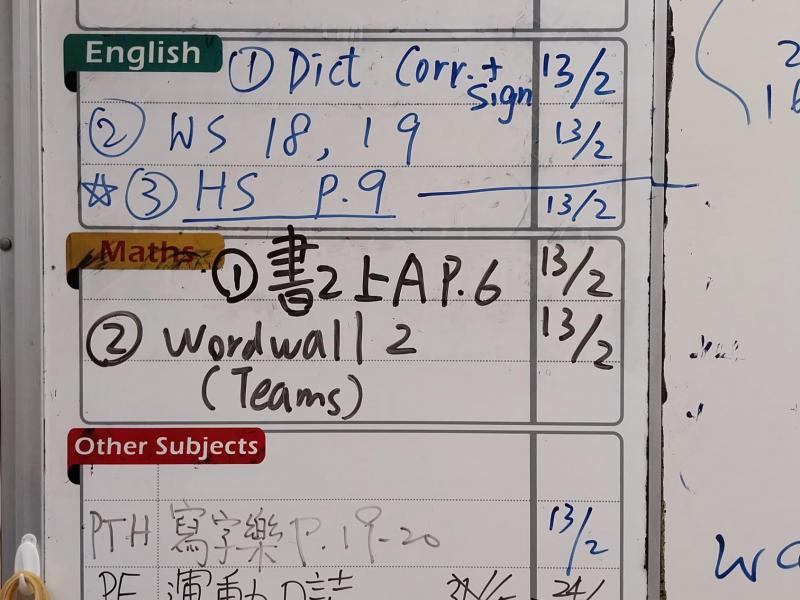 English ① Dict Corr. + Sign 13/2
② WS 18, 19 13/2
☆ ③ HS P.9 13/2
Maths ① 書2上A P.6 13/2
② Wordwall 2 13/2
(Teams)
Other Subjects
PTH 寫字樂 P.19-20 13/2
PE 運動日誌 24/